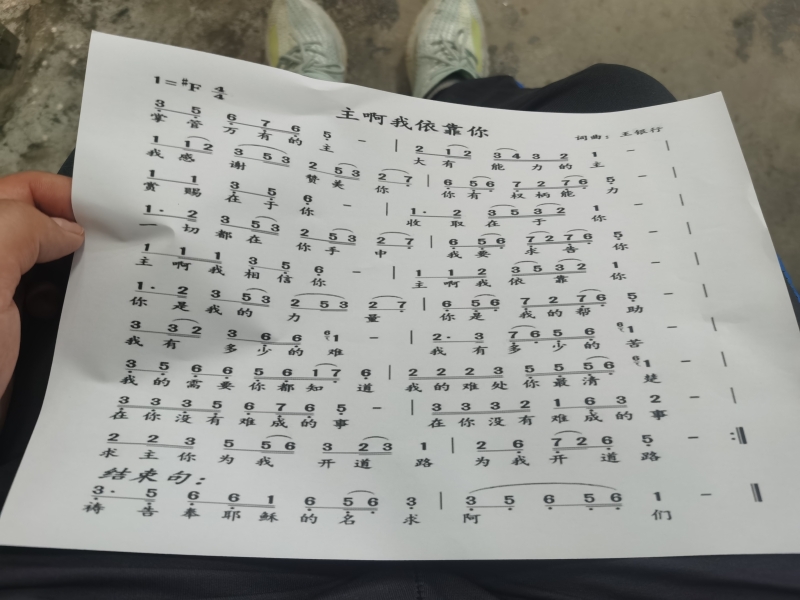 1=#F 4/4
主啊我依靠你
词曲：王银行
3 5 6 7 6 5 - | 2 1 2 3 4 3 2 1 - |
掌管万有的主 大有能力的主
1 1 2 3 5 3 2 5 3 2 7 | 6 5 6 7 2 7 6 5 - |
我感谢赞美你 你有权柄能力
1 1 3 5 6 - | 1· 2 3 5 3 2 1 - |
赏赐在于你 收取在于你
1· 2 3 5 3 2 5 3 2 7 | 6 5 6 7 2 7 6 5 - |
一切都在你手中 我要求告你
1 1 1 3 5 6 - | 1 1 2 3 5 3 2 1 - |
主啊我相信你 主啊我依靠你
1· 2 3 5 3 2 5 3 2 7 | 6 5 6 7 2 7 6 5 - |
你是我的力量 你是我的帮助
3 3 2 3 6 6 1 - | 2· 3 7 6 5 6 1 - |
我有多少的难 我有多少的苦
3 5 6 6 5 6 1 7 6 | 2 2 2 3 5 5 5 6 1 - |
我的需要你都知道 我的难处你最清楚
3 3 3 5 6 7 6 5 - | 3 3 3 2 1 6 3 2 - |
在你没有难成的事 在你没有难成的事
2 2 3 5 5 6 3 2 3 1 | 2 6 7 2 6 5 - :‖
求主你为我开道路 为我开道路
结束句：
3· 5 6 6 1 6 5 6 3 | 3 5 6 5 6 1 - ‖
祷告奉耶稣的名求 阿们